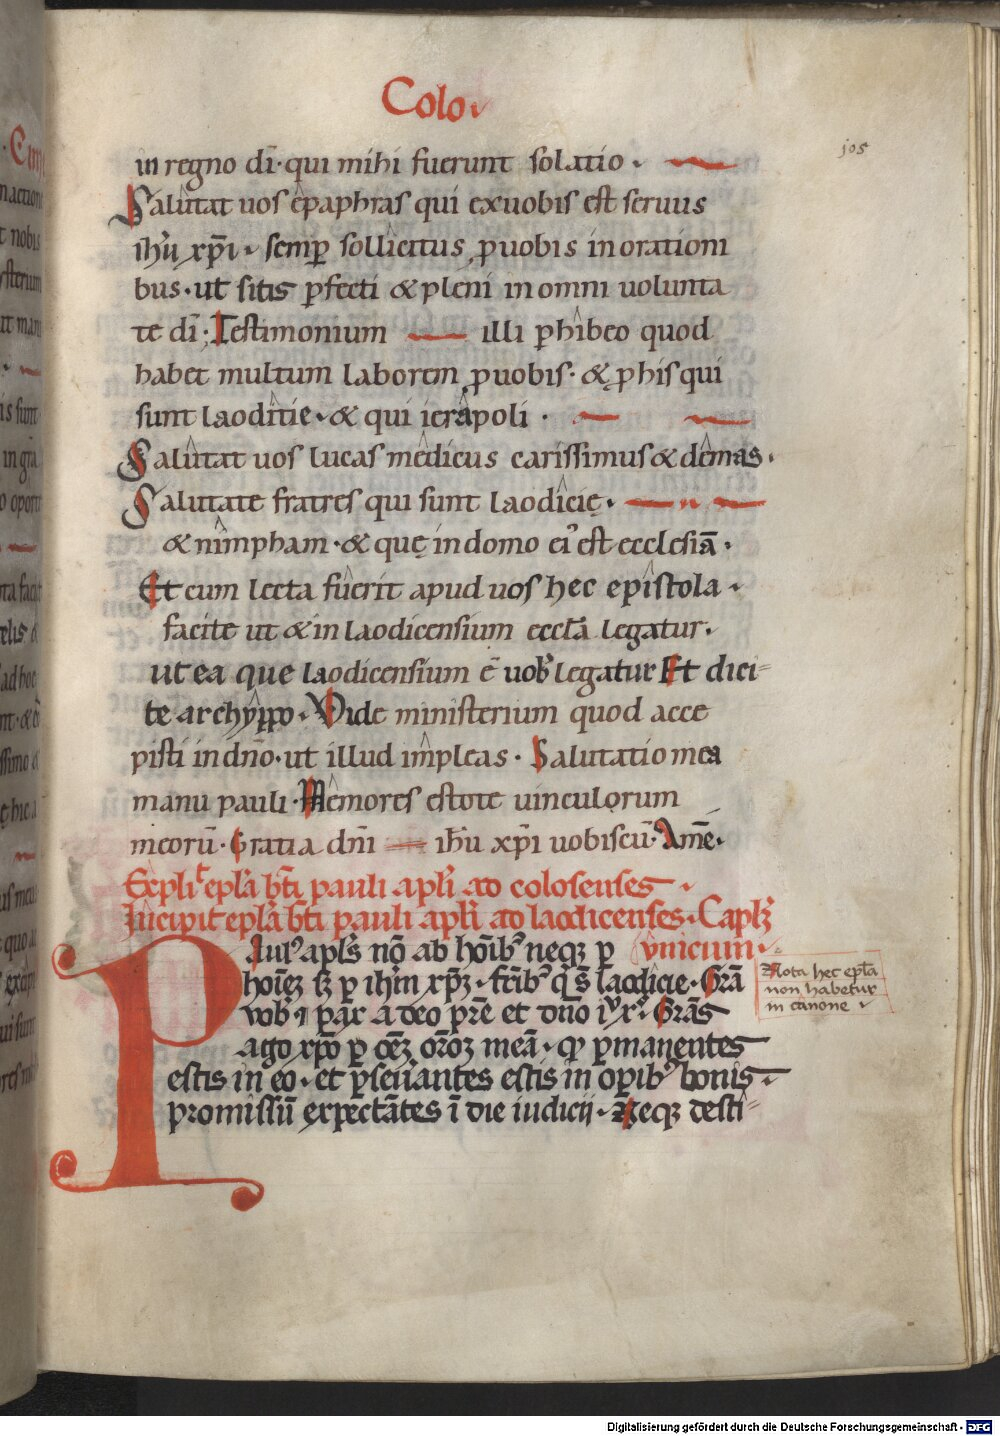 Colo.
105
in regno dī· qui mihi fuerunt solatio.
Salutat uos epaphras qui exuobis est seruus
ihū xp̄i. semp̄ sollicitus, ꝓuobis inorationi
bus· ut sitis ꝑfecti & pleni inomni uolunta
te dī; Testimonium illi ꝑhibeo quod
habet multum laborem, ꝓuobis· & ꝓhisqui
sunt laoditie. & qui ierapoli ·
Salutat uos lucas medicus carissimus & demas.
Salutate fratres qui sunt laodicię.
& nimpham· & quę indomo ei' est ecclesiā.
Et cum lecta fuerit apud uos hec epistola.
facite ut & in laodicensium eccl̄a legatur.
ut ea que laodicensium ē uob' legatur Et dici=
te archyppo. Vide ministerium quod acce
pisti in dn̄o· ut illud impleas· Salutatio mea
manu pauli· Memores estote uinculorum
meorū· Gratia dn̄i ihū xp̄i uobiscū· Amē.
Explic̄t epl̄a bt̄i pauli apl̄i ad colosenses.
Incipit epl̄a bt̄i pauli apl̄i ad laodicenses. Caplꝫ
Paul' apl̄s nō ab hoīb' neqꝫ ꝑ vnicum.
hoīeꝫ sꝫ ꝑ ihm̄ xp̄ꝫ· fr̄ib' q̄ s̄ laodicie. Grā
vob' ⁊ pax a deo pr̄e et dn̄o iy xͦ. Grās
ago xp̄o ꝑ oēꝫ orōꝫ meā· qp ꝑmanentes
estis in eo. et ꝑseuantes estis in opib' bonis.
promissiū expectātes ī die iudicij. Neqꝫ desti=
Nota hec epl̄a
non habetur
in canone
Digitalisierung gefördert durch die Deutsche Forschungsgemeinschaft - DFG